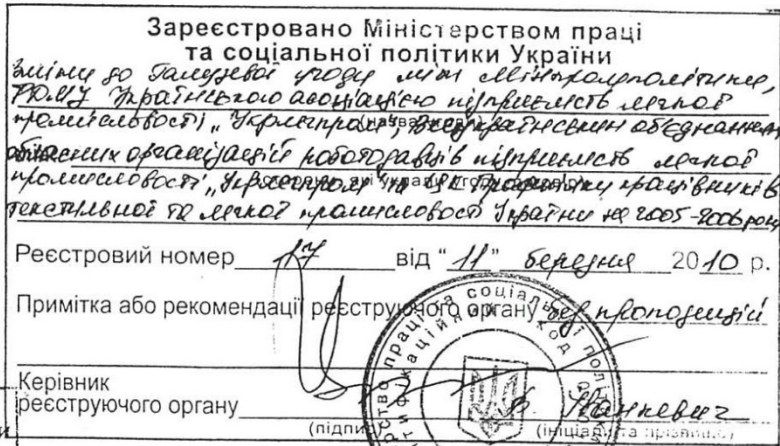 Зареєстровано Міністерством праці
та соціальної політики України
зміни до Галузевої угоди між Мінпромполітики,
Українською асоціацією підприємств легкої
промисловості „Укрлегпром”, Всеукраїнським об'єднанням
обласних організацій роботодавців підприємств легкої
промисловості „Укрлегпром” та ЦК Профспілки працівників
текстильної та легкої промисловості України на 2005-2006 роки
Реєстровий номер 17 від “11” березня 2010 р.
Примітка або рекомендації реєструючого органу без пропозицій
Керівник
реєструючого органу
(підпис) (ініціали та прізвище)